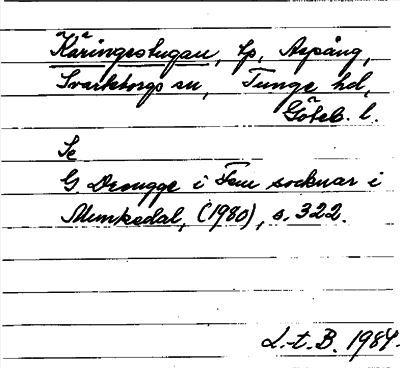 Käringestugan, tp, Aspång,
Svarteborgs sn, Tunge hd,
Göteb. l.
Se
G. Drougge i Fem socknar i
Munkedal, (1980), s. 322.
L.t.B. 1984.